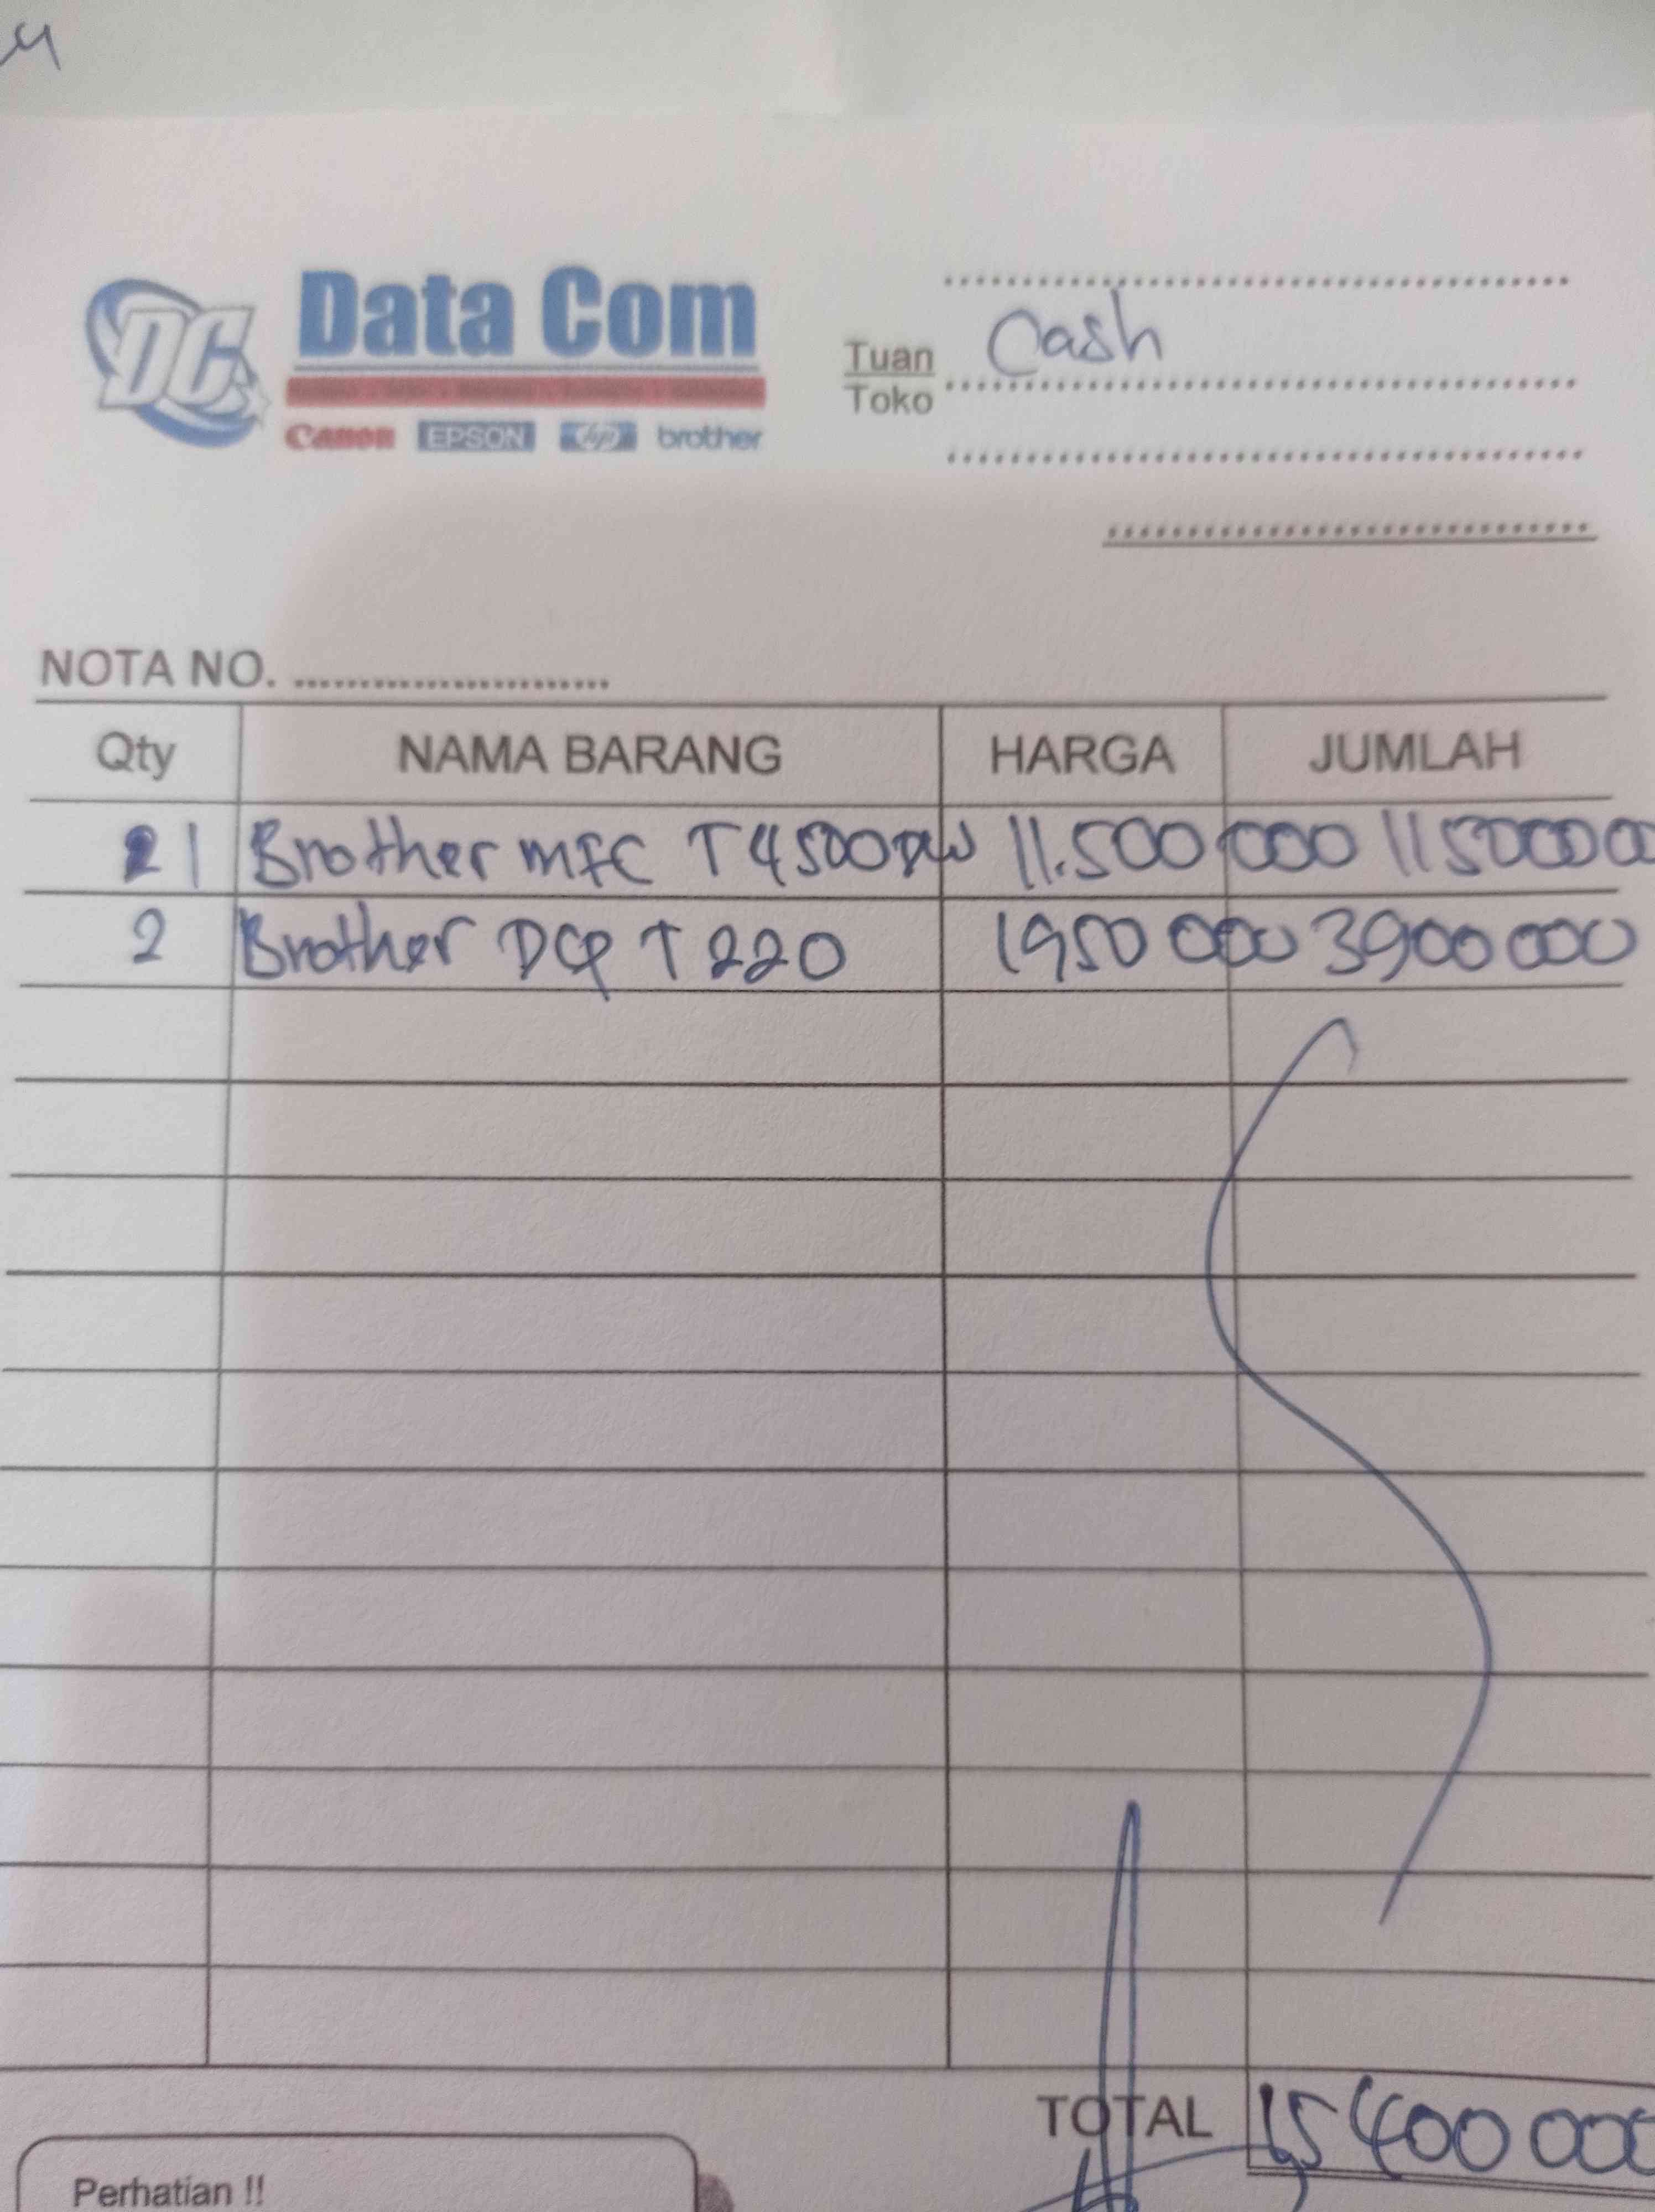 Data Com
DC
Canon EPSON hp brother
Tuan Cash
Toko
NOTA NO. ........................
Qty NAMA BARANG HARGA JUMLAH
1 Brother MFC T4500DW 11.500 000 11500000
2 Brother DCP T220 1950 000 3900 000
TOTAL 15 400 000
Perhatian !!